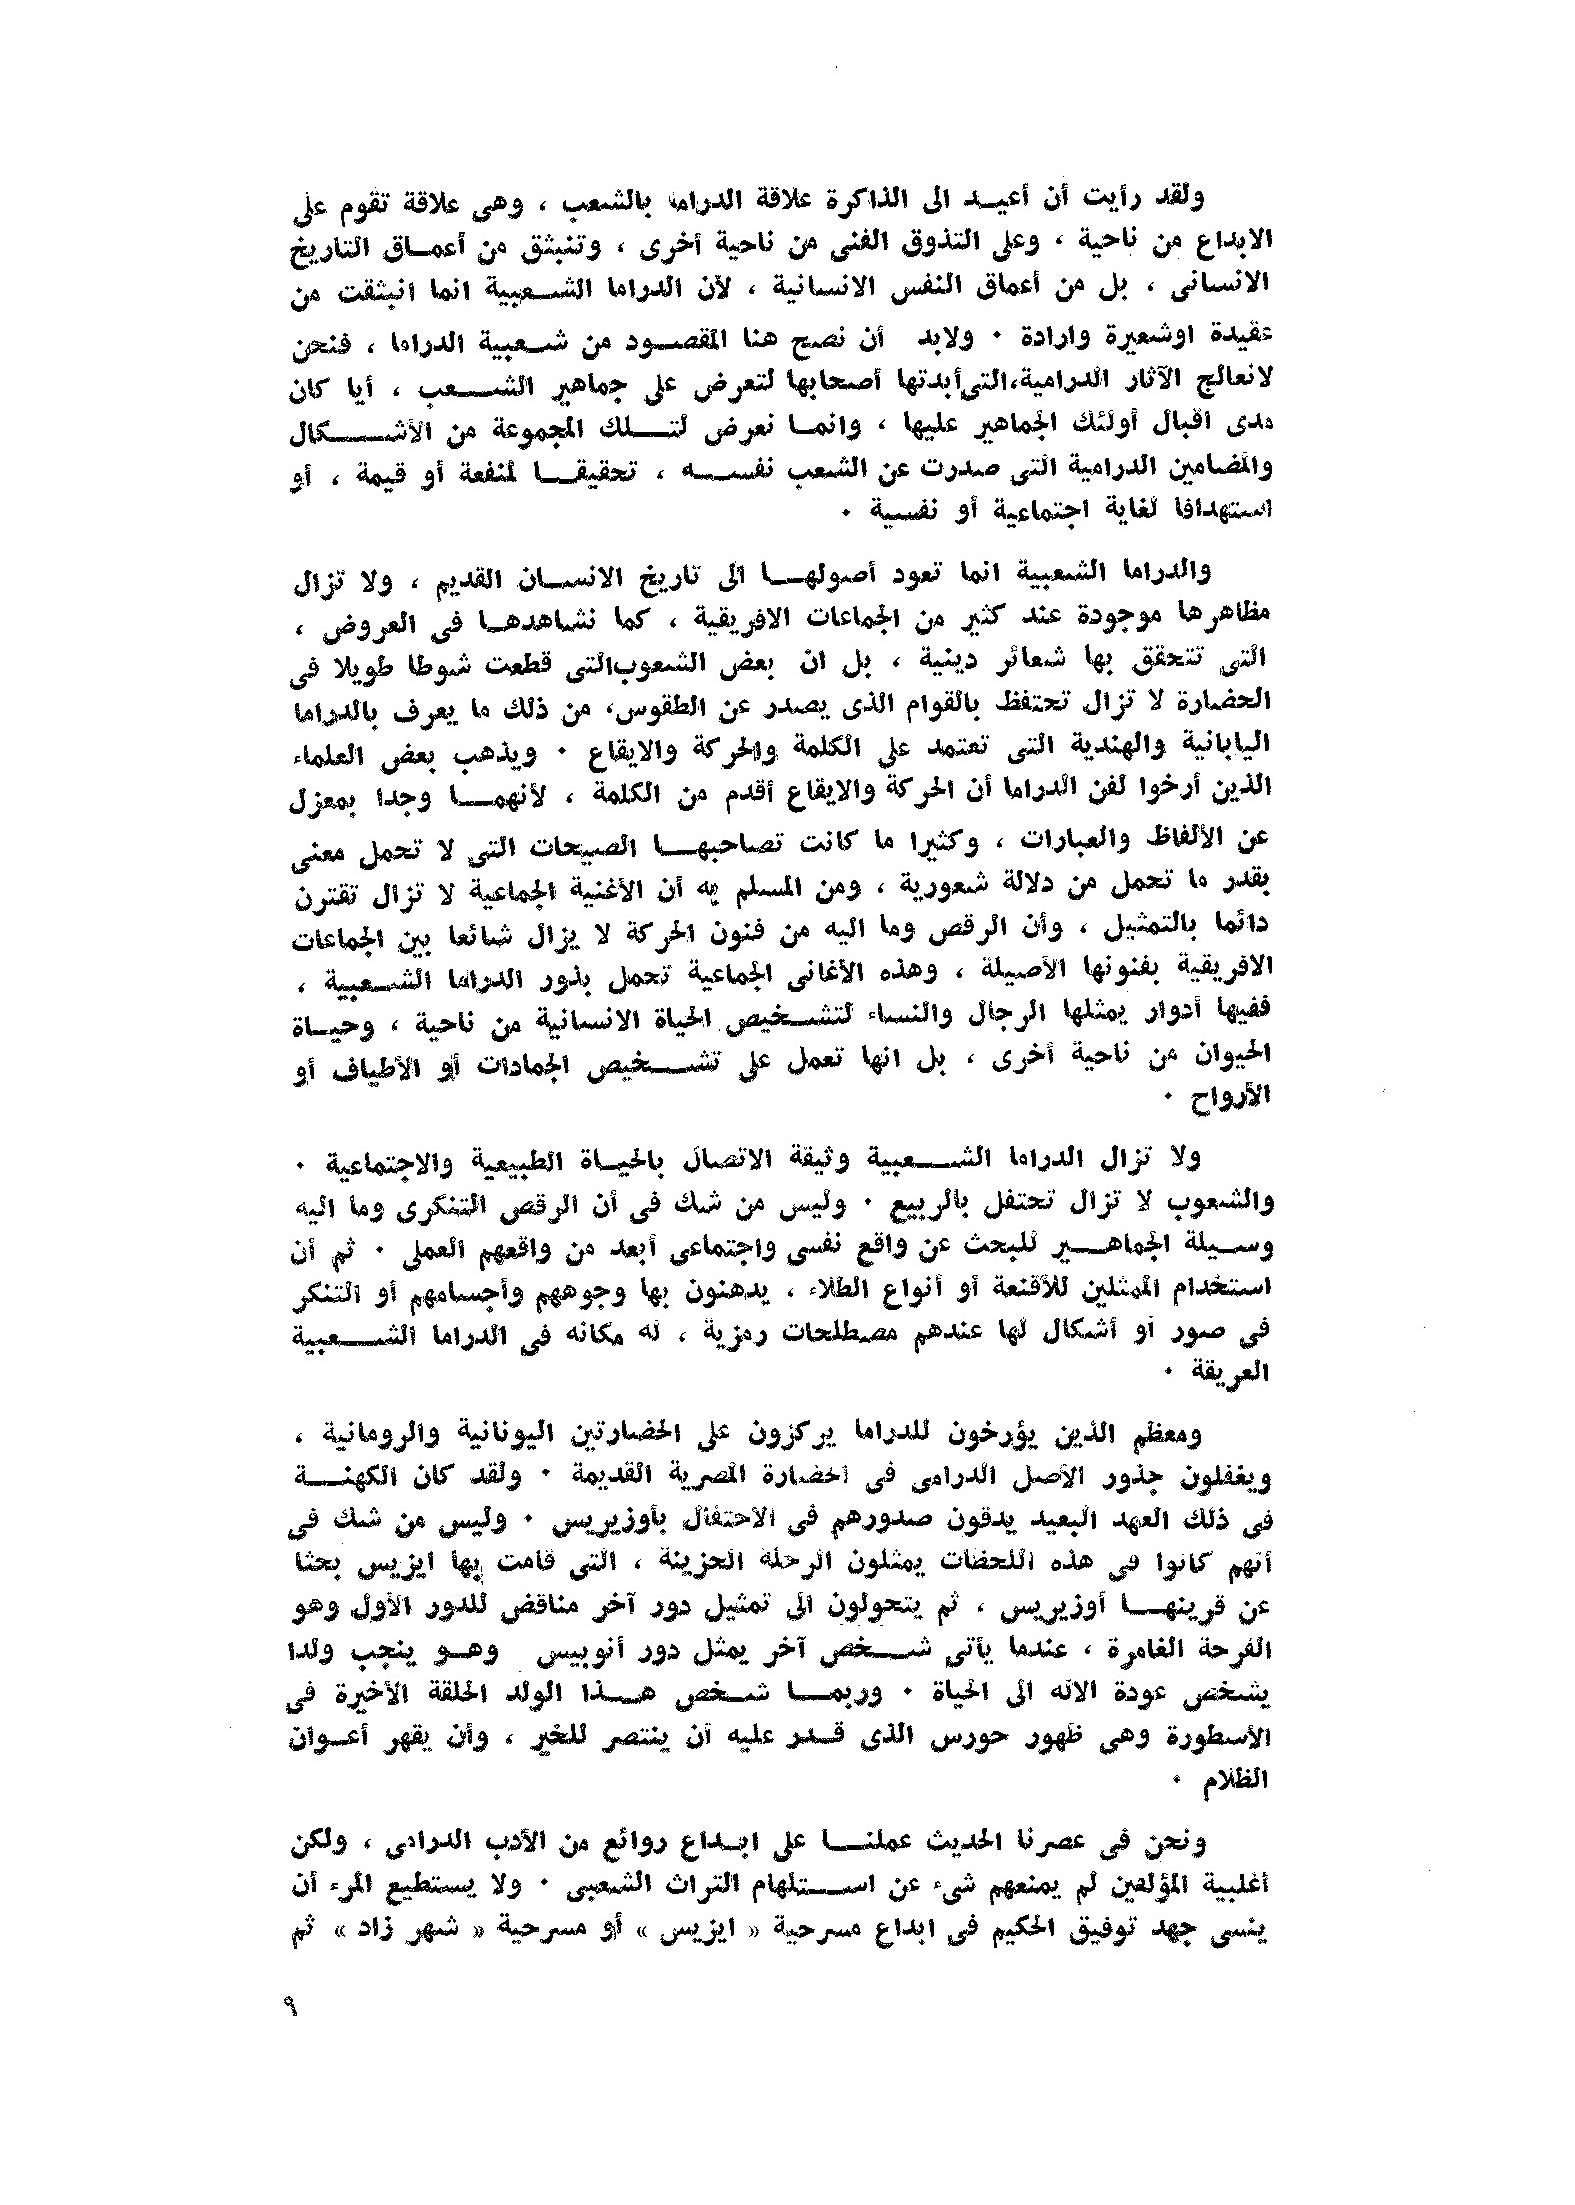 ولقد رأيت أن أعيد الى الذاكرة علاقة الدراما بالشعب ، وهى علاقة تقوم على
الابداع من ناحية ، وعلى التذوق الفنى من ناحية أخرى ، وتنبثق من أعماق التاريخ
الانسانى ، بل من أعماق النفس الانسانية ، لأن الدراما الشعبية انما انبثقت من
عقيدة اوشعيرة وارادة · ولابد أن نصح هنا المقصود من شعبية الدراما ، فنحن
لانعالج الآثار الدرامية،التى أبدتها أصحابها لتعرض على جماهير الشعب ، أيا كان
مدى اقبال أولئك الجماهير عليها ، وانما نعرض لتلك المجموعة من الأشكال
والمضامين الدرامية التى صدرت عن الشعب نفسه ، تحقيقا لمنفعة أو قيمة ، أو
استهدافا لغاية اجتماعية أو نفسية ·
والدراما الشعبية انما تعود أصولها الى تاريخ الانسان القديم ، ولا تزال
مظاهرها موجودة عند كثير من الجماعات الافريقية ، كما نشاهدها فى العروض ،
التى تتحقق بها شعائر دينية ، بل ان بعض الشعوب التى قطعت شوطا طويلا فى
الحضارة لا تزال تحتفظ بالقوام الذى يصدر عن الطقوس، من ذلك ما يعرف بالدراما
اليابانية والهندية التى تعتمد على الكلمة والحركة والايقاع · ويذهب بعض العلماء
الذين أرخوا لفن الدراما أن الحركة والايقاع أقدم من الكلمة ، لأنهما وجدا بمعزل
عن الألفاظ والعبارات ، وكثيرا ما كانت تصاحبها الصيحات التى لا تحمل معنى
بقدر ما تحمل من دلالة شعورية ، ومن المسلم به أن الأغنية الجماعية لا تزال تقترن
دائما بالتمثيل ، وأن الرقص وما اليه من فنون الحركة لا يزال شائعا بين الجماعات
الافريقية بفنونها الأصيلة ، وهذه الأغانى الجماعية تحمل بذور الدراما الشعبية ،
ففيها أدوار يمثلها الرجال والنساء لتشخيص الحياة الانسانية من ناحية ، وحياة
الحيوان من ناحية أخرى ، بل انها تعمل على تشخيص الجمادات أو الأطياف أو
الأرواح ·
ولا تزال الدراما الشعبية وثيقة الاتصال بالحياة الطبيعية والاجتماعية ·
والشعوب لا تزال تحتفل بالربيع · وليس من شك فى أن الرقص التنكرى وما اليه
وسيلة الجماهير للبحث عن واقع نفسى واجتماعى أبعد من واقعهم العملى · ثم أن
استخدام الممثلين للأقنعة أو أنواع الطلاء ، يدهنون بها وجوههم وأجسامهم أو التنكر
فى صور أو أشكال لها عندهم مصطلحات رمزية ، له مكانه فى الدراما الشعبية
العريقة ·
ومعظم الذين يؤرخون للدراما يركزون على الحضارتين اليونانية والرومانية ،
ويغفلون جذور الأصل الدرامى فى الحضارة المصرية القديمة · ولقد كان الكهنة
فى ذلك العهد البعيد يدقون صدورهم فى الاحتفال بأوزيريس · وليس من شك فى
أنهم كانوا فى هذه اللحظات يمثلون الرحلة الحزينة ، التى قامت بها ايزيس بحثا
عن قرينها أوزيريس ، ثم يتحولون الى تمثيل دور آخر مناقض للدور الأول وهو
الفرحة الغامرة ، عندما يأتى شخص آخر يمثل دور أنوبيس وهو ينجب ولدا
يشخص عودة الاله الى الحياة · وربما شخص هذا الولد الحلقة الأخيرة فى
الأسطورة وهى ظهور حورس الذى قدر عليه أن ينتصر للخير ، وأن يقهر أعوان
الظلام ·
ونحن فى عصرنا الحديث عملنا على ابداع روائع من الأدب الدرامى ، ولكن
أغلبية المؤلفين لم يمنعهم شىء عن استلهام التراث الشعبى · ولا يستطيع المرء أن
ينسى جهد توفيق الحكيم فى ابداع مسرحية « ايزيس » أو مسرحية « شهر زاد » ثم
٩